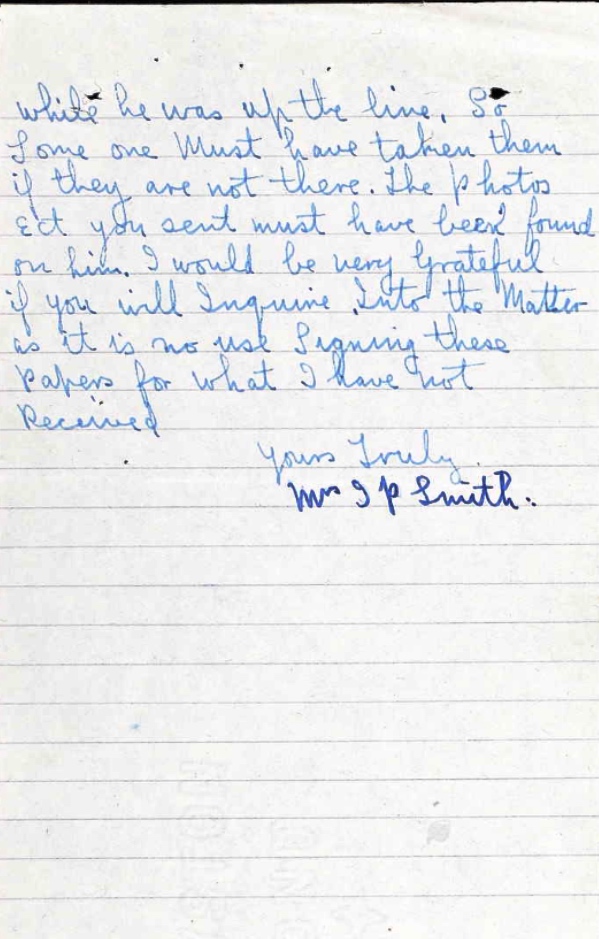 while he was up the line, So
Some one Must have taken them
if they are not there. The Photos
Ect you sent must have been found
on him. I would be very Grateful
if you will Inquire Into the Matter
as it is no use Signing these
Papers for what I have not
Received
Yours Truly.
Mrs I P Smith.